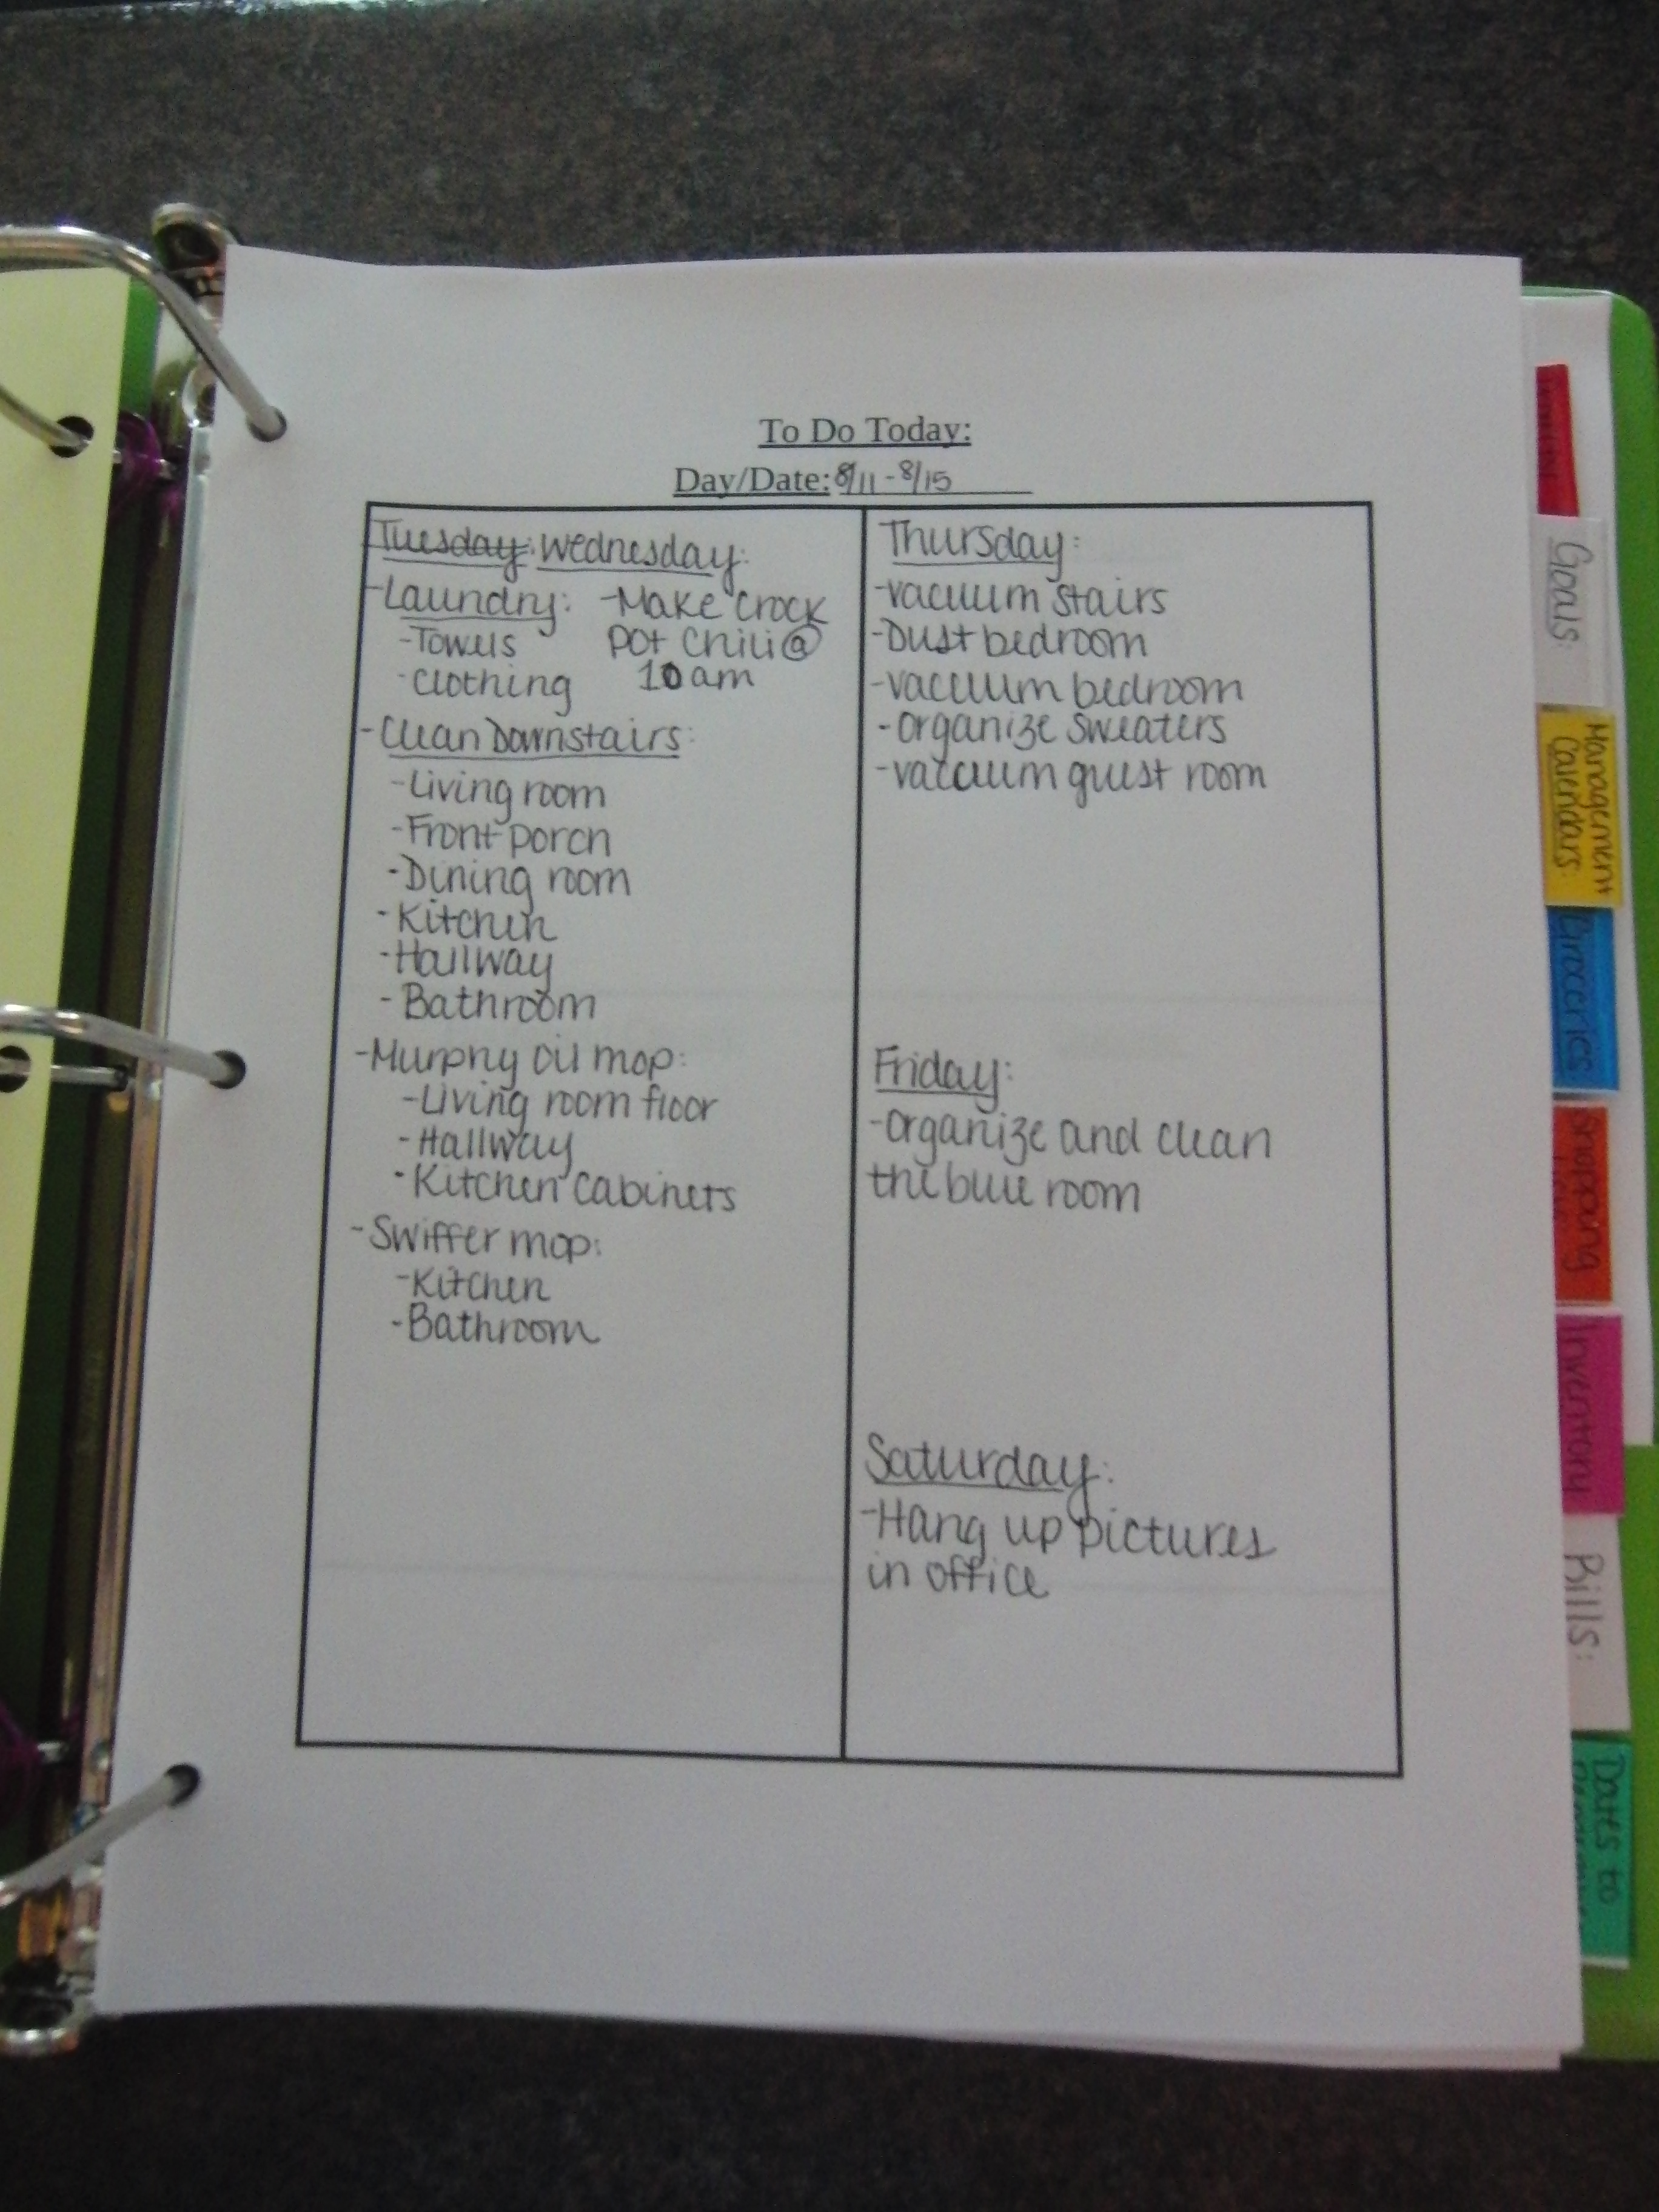 To Do Today:
Day/Date: 8/11 - 8/15
Tuesday: Wednesday:
-Laundry:
-Towels
-Clothing
-Make crock
pot chili @
10am
-Clean Downstairs:
-Living room
-Front porch
-Dining room
-Kitchen
-Hallway
-Bathroom
-Murphy oil mop:
-Living room floor
-Hallway
-Kitchen cabinets
-Swiffer mop:
-Kitchen
-Bathroom
Thursday:
-vacuum stairs
-Dust bedroom
-vaccuum bedroom
-organize sweaters
-vaccuum guest room
Friday:
-organize and clean
the blue room
Saturday:
-Hang up pictures
in office
Goals:
Management
Calendars:
Groceries:
Shopping
Inventory
Bills:
Dates to